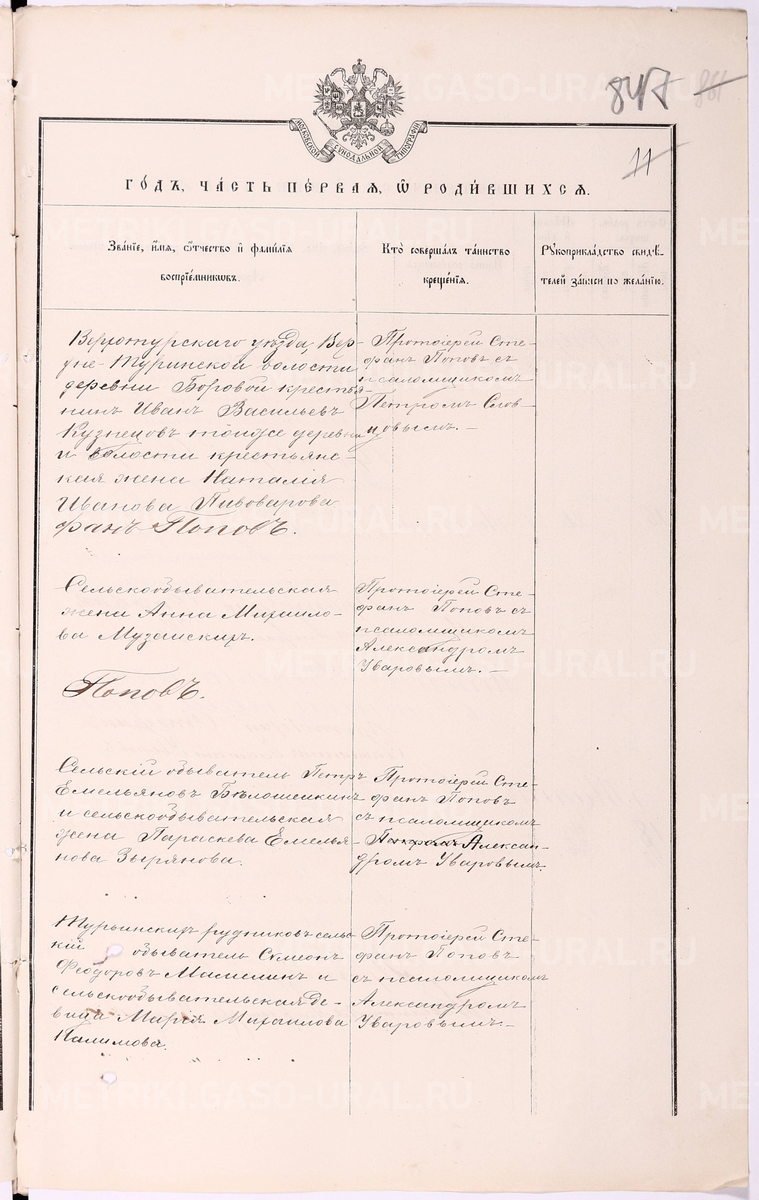 847 861
11
МОСКОВСКОЙ СѴНОДАЛЬНОЙ ТИПОГРАФІИ
ГО́ДЪ, ЧА́СТЬ ПЕ́РВАЯ, Ѽ РОДИ́ВШИХСЯ.
Зва́нїе, и҆́мя, ѻ҆́тчество и҆ фами́лїя
воспрїе́мниковъ.
Кто̀ соверша́лъ та́инство
креще́нїя.
Рꙋкоприкла́дство свидѣ́-
телей за́писи по жела́нїю.
Верхотурскаго уѣзда, Вер-
хне-Туринской волости
деревни Боровой крестья-
нинъ Иванъ Васильевъ
Кузнецовъ тойже деревни
и волости крестьянс-
кая жена Наталія
Иванова Пивоварова
фанъ Поповъ.
Протоіерей Сте-
фанъ Поповъ съ
псаломщикомъ
Петромъ Слов-
цовымъ.—
Сельскообывательская
жена Анна Михаило-
ва Музайскихъ.
Поповъ.
Протоіерей Сте-
фанъ Поповъ съ
псаломщикомъ
Александромъ
Уваровымъ.—
Сельскій обыватель Петръ
Емельяновъ Бѣлошейкинъ
и сельскообывательская
жена Параскева Емелья-
нова Зырянова.
Протоіерей Сте-
фанъ Поповъ
съ псаломщикомъ
Петромъ Алексан-
дромъ Уваровымъ.
Турьинскихъ рудниковъ сельс-
кій обыватель Симеонъ
Феодоровъ Мамилинъ и
сельскообывательская де-
вица Марія Михаилова
Налимова.
Протоіерей Сте-
фанъ Поповъ
съ псаломщикомъ
Александромъ
Уваровымъ.—
METRIKI.GASO-URAL.RU